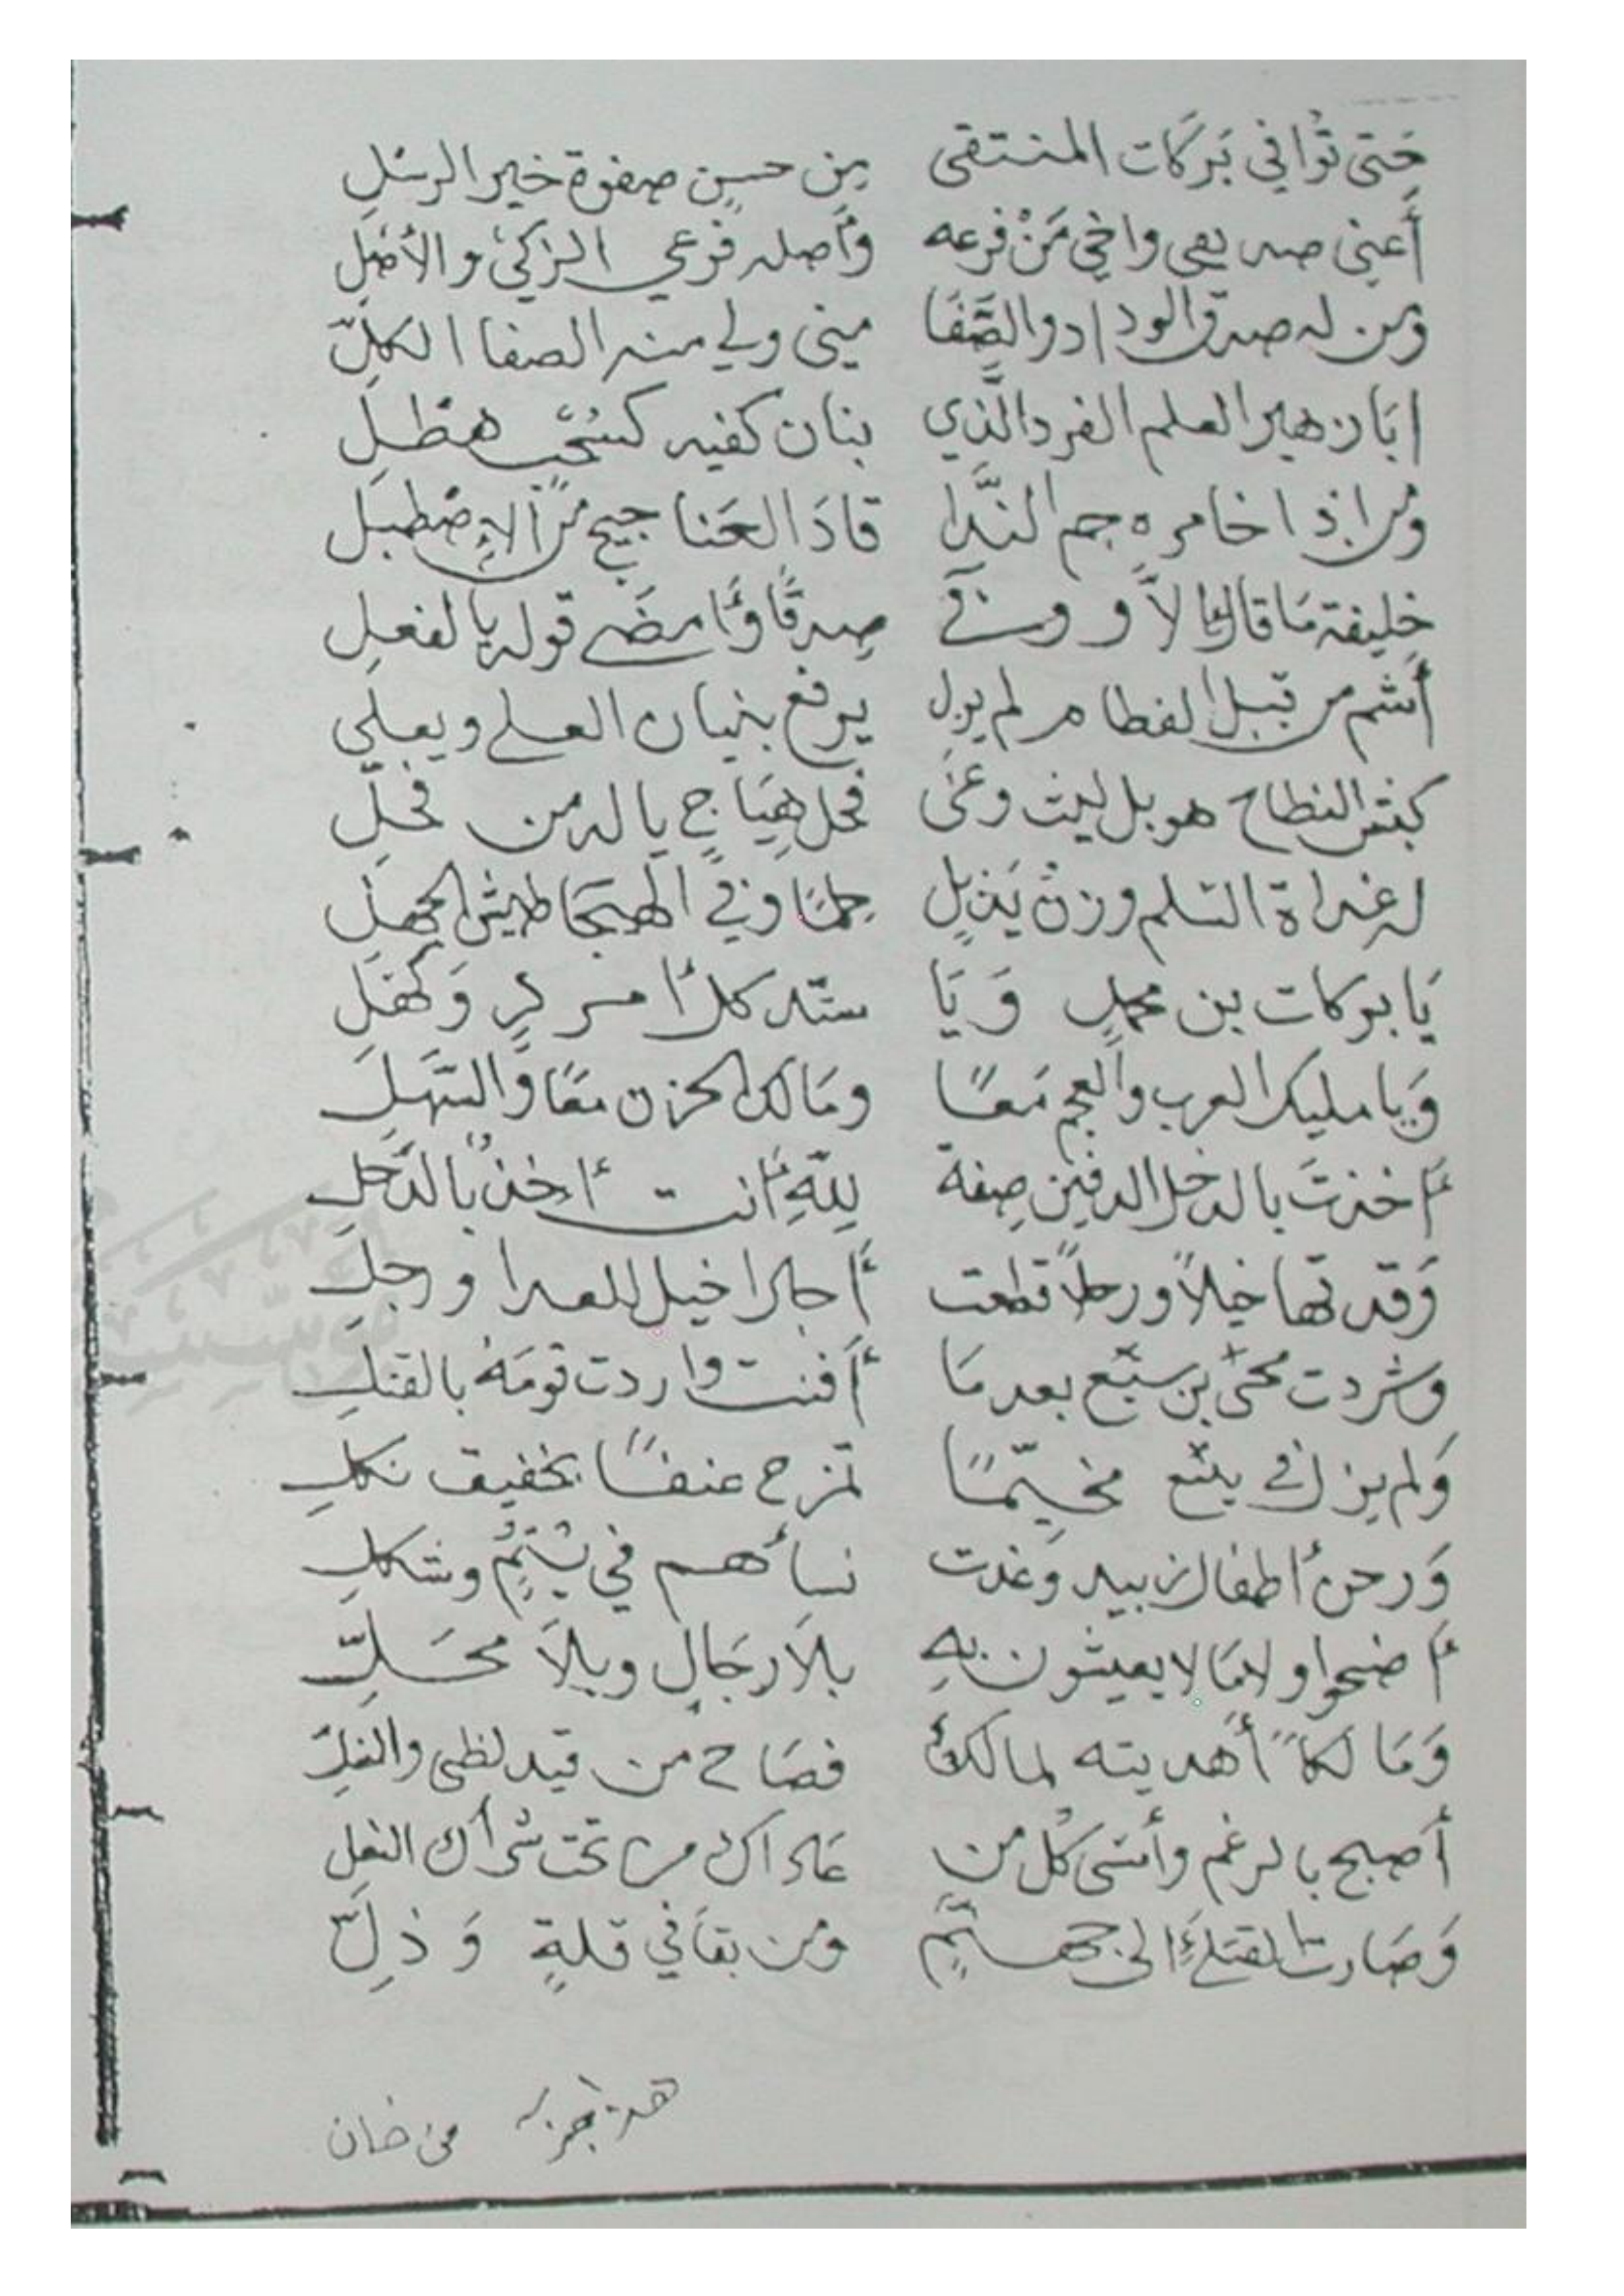 حَتى تُوافي بَرَكات المنتقى من حسنٍ صفوة خير الرسلِ
أعني صديقي واخي مَنْ فرعه وأصله فرعي الزكيُّ والأصْلِ
ومن له صدق الوداد والصَّفَا مني ولي منه الصفا الكلِّ
ابَا زهير العلم الفرد الَّذي بنان كفيه كسُحُبٍ هطلِ
ومن إذا خامره جم النَّدا قادَ العَناجيج منَ الإصْطبلِ
خليفة مَا قال لا لا وَ وفي صدقًا وَأمضَى قوله بالفعلِ
أشم من قبل الفطام لم يزل يرفع بنيان العلى ويعلي
كبش النطاح هو بل ليث وغى فحل هِيَاجٍ يا له من فحلِ
له غداة السلم وزن يَذبلٍ حِلمًا وفي الهيجا طيش الجهلِ
يَا بركات بن محمدٍ وَيَا سند كلا من وَكهلِ
وَيا مليك العرب والعجم مَعًا ومَالك الحزن معًا والسَّهلِ
أخذتَ بالدخل الدفين صفة لِلَّهِ أنت أخذٌ بالدَّخلِ
وَقدتها خيلاً ورجلاً قطعت أجال خيل للعدا ورجلِ
وشردت محيَّ بن سبَّع بعد مَا أفنت واردت قومَهُ بالقتلِ
وَلم يزل في ينبع مخيّمًا تمزح عنفًا بخفيف نكلِ
وَرحن أطفال زبيد وَغدت نسأهم في يُتمٍ وثكلِ
أضحوا ولا مَا لا يعيشون بهِ بلاَ رجَالٍ وبلاَ محَلِّ
وَمَالكاً أهديته لمالكٍ فصَاح من قيد لظى والغلِّ
أصبح بالرغم وأمسى كُل من عاداك من تحت شراك النعلِ
وَصَارت القتلى إلى جهنَّمٍ ومن بقَا في قلةٍ وَذلِّ